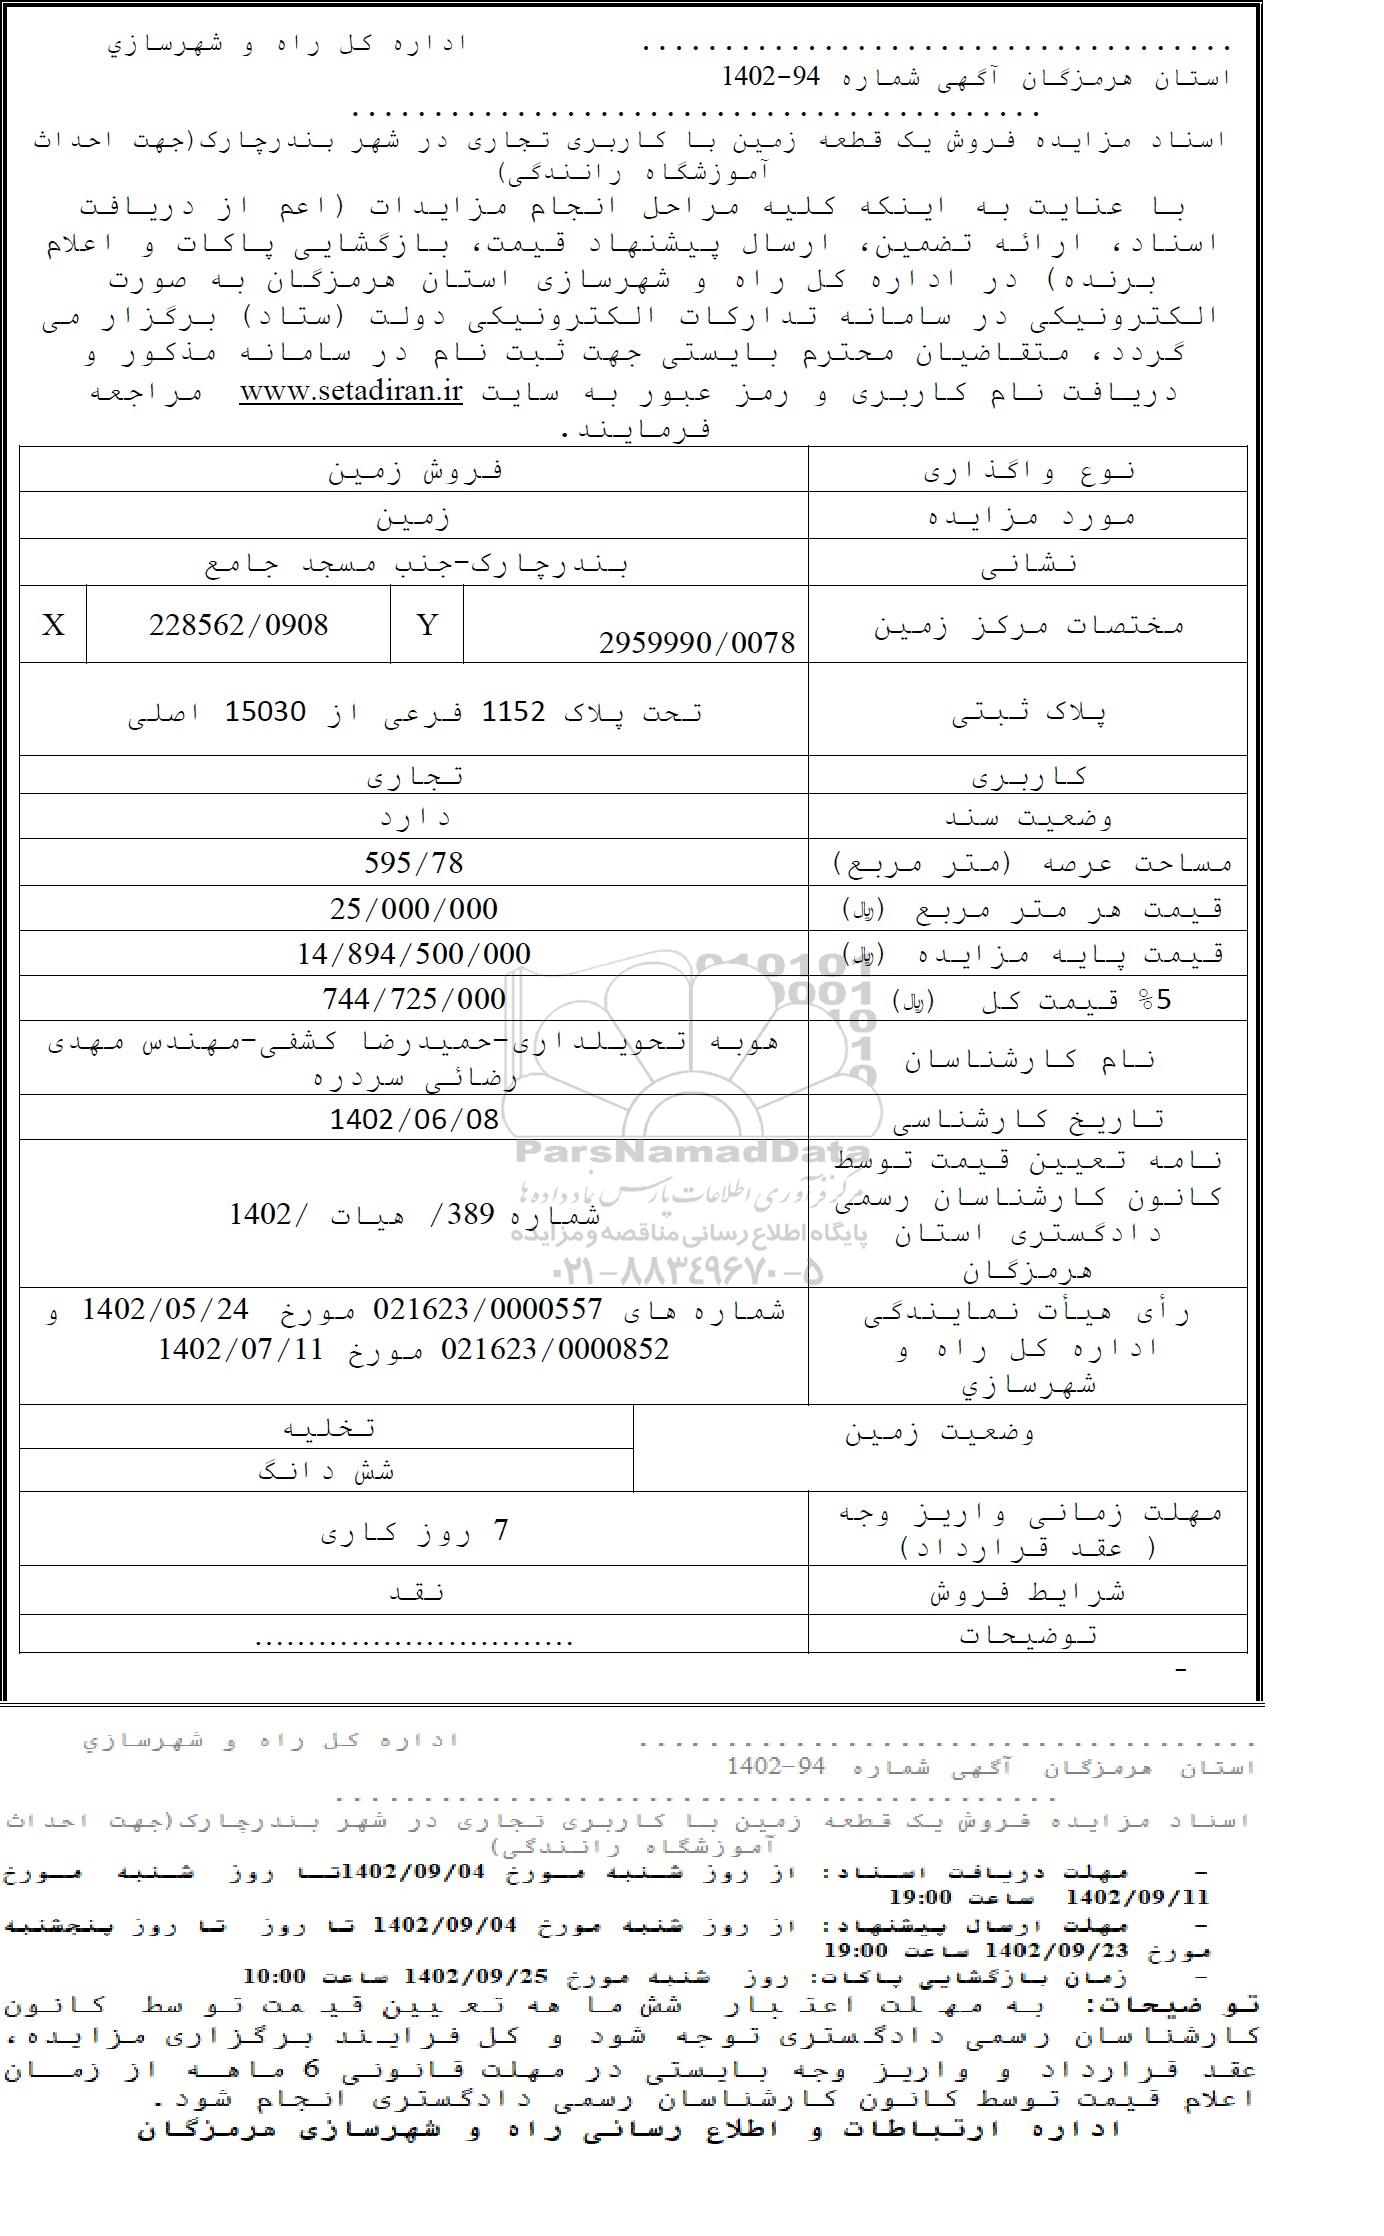 ................................... اداره کل راه و شهرسازي
استان هرمزگان آگهی شماره 94-1402
.........................................
اسناد مزایده فروش یک قطعه زمین با کاربری تجاری در شهر بندرچارک(جهت احداث
آموزشگاه رانندگی)
با عنایت به اینکه کلیه مراحل انجام مزایدات (اعم از دریافت
اسناد، ارائه تضمین، ارسال پیشنهاد قیمت، بازگشایی پاکات و اعلام
برنده) در اداره کل راه و شهرسازی استان هرمزگان به صورت
الکترونیکی در سامانه تدارکات الکترونیکی دولت (ستاد) برگزار می
گردد، متقاضیان محترم بایستی جهت ثبت نام در سامانه مذکور و
دریافت نام کاربری و رمز عبور به سایت www.setadiran.ir مراجعه
فرمایند.
نوع واگذاری فروش زمین
مورد مزایده زمین
نشانی بندرچارک-جنب مسجد جامع
مختصات مرکز زمین 2959990/0078 Y 228562/0908 X
پلاک ثبتی تحت پلاک 1152 فرعی از 15030 اصلی
کاربری تجاری
وضعیت سند دارد
مساحت عرصه (متر مربع) 595/78
قیمت هر متر مربع (﷼) 25/000/000
قیمت پایه مزایده (﷼) 14/894/500/000
5% قیمت کل (﷼) 744/725/000
نام کارشناسان هوبه تحویلداری-حمیدرضا کشفی-مهندس مهدی
رضائی سردره
تاریخ کارشناسی 1402/06/08
نامه تعیین قیمت توسط
کانون کارشناسان رسمی
دادگستری استان
هرمزگان
شماره 389/ هیات /1402
رأی هیأت نمایندگی
اداره کل راه و
شهرسازي
شماره های 021623/0000557 مورخ 1402/05/24 و
021623/0000852 مورخ 1402/07/11
وضعیت زمین تخلیه
شش دانگ
مهلت زمانی واریز وجه
( عقد قرارداد)
7 روز کاری
شرایط فروش نقد
توضیحات ..............................
-
ParsNamadData
مرکز فرآوری اطلاعات پارس نماد داده ها
پایگاه اطلاع رسانی مناقصه و مزایده
۰۲۱-۸۸۳۴۹۶۷۰-۵
................................... اداره کل راه و شهرسازي
استان هرمزگان آگهی شماره 94-1402
.........................................
اسناد مزایده فروش یک قطعه زمین با کاربری تجاری در شهر بندرچارک(جهت احداث
آموزشگاه رانندگی)
- مهلت دریافت اسناد: از روز شنبه مورخ 1402/09/04تا روز شنبه مورخ
1402/09/11 ساعت 19:00
- مهلت ارسال پیشنهاد: از روز شنبه مورخ 1402/09/04 تا روز تا روز پنجشنبه
مورخ 1402/09/23 ساعت 19:00
- زمان بازگشایی پاکات: روز شنبه مورخ 1402/09/25 ساعت 10:00
تو ضیحات: به مهلت اعتبار شش ما هه تعیین قیمت تو سط کانون
کارشناسان رسمی دادگستری توجه شود و کل فرایند برگزاری مزایده،
عقد قرارداد و واریز وجه بایستی در مهلت قانونی 6 ماهه از زمان
اعلام قیمت توسط کانون کارشناسان رسمی دادگستری انجام شود.
اداره ارتباطات و اطلاع رسانی راه و شهرسازی هرمزگان